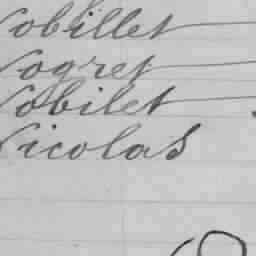 Nobillet
Nogret
Nobilet
Nicolas